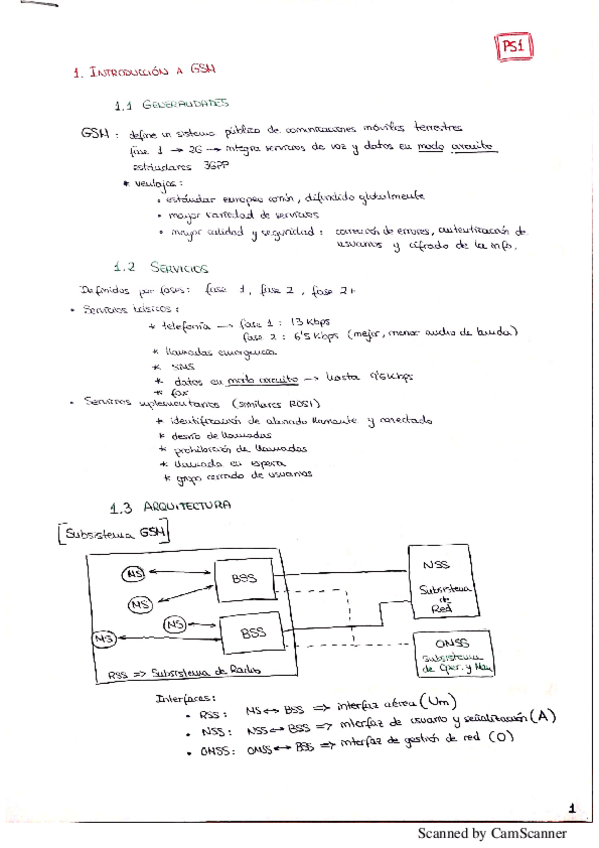 PS1
1. INTRODUCCIÓN A GSM
1.1 GENERALIDADES
GSM : define un sistema público de comunicaciones móviles terrestres
fase 1 → 2G → integra servicios de voz y datos en modo circuito
estándares 3GPP
* ventajas :
• estándar europeo común, difundido globalmente
• mayor variedad de servicios
• mayor calidad y seguridad : corrección de errores, autentización de
usuarios y cifrado de la info.
1.2 SERVICIOS
Definidos por fases : fase 1, fase 2, fase 2+
• Servicios básicos :
* telefonía → fase 1 : 13 Kbps
fase 2 : 6'5 Kbps (mejor, menor ancho de banda)
* llamadas emergencia
* SMS
* datos en modo circuito → hasta 9'6 Kbps
* fax
• Servicios suplementarios (similares RDSI)
* identificación de abonado llamante y conectado
* desvío de llamadas
* prohibición de llamadas
* llamada en espera
* grupo cerrado de usuarios
1.3 ARQUITECTURA
[Subsistema GSM]
MS
BSS
NSS
Subsistema
de
Red
MS
MS
BSS
MS
OMSS
Subsistema
de Oper. y Man
RSS => Subsistema de Radio
Interfaces:
• RSS : MS ↔ BSS => interfaz aérea (Um)
• NSS : NSS ↔ BSS => interfaz de usuario y señalización (A)
• OMSS : OMSS ↔ BSS => interfaz de gestión de red (O)
1
Scanned by CamScanner